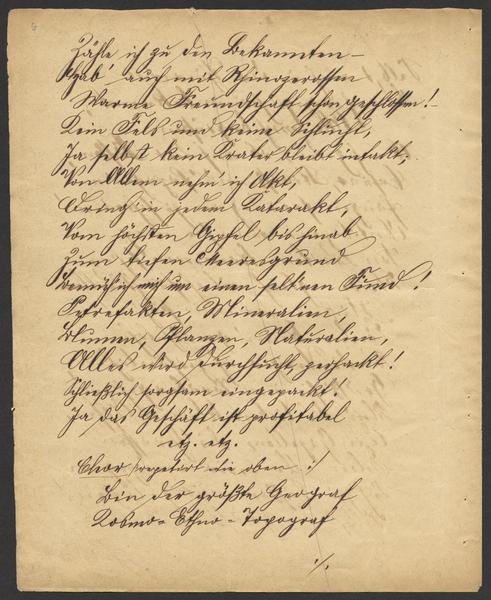 Zähle ich zu den Bekannten –
Hab' auch mit Rhinozerossen
Warme Freundschaft schon geschlossen! –
Kein Fels und keine Schlucht,
Ja selbst kein Krater bleibt intakt,
Von Allem nehm' ich Akt,
Bring' in jedem Katarakt,
Vom höchsten Gipfel bis hinab
Zum tiefen Meeresgrund
Bemüh' ich mich um einen selt'nen Fund!
Petrefakten, Mineralien,
Blumen, Pflanzen, Naturalien,
Alles wird durchsucht, zerhackt!
Schließlich sorgsam eingepackt!
Ja, das Geschäft ist profitabel
etz. etz.
Chor repetirt wie oben :/
Bin der größte Geograf
Kosmo- Ethno- Topograf
:/.